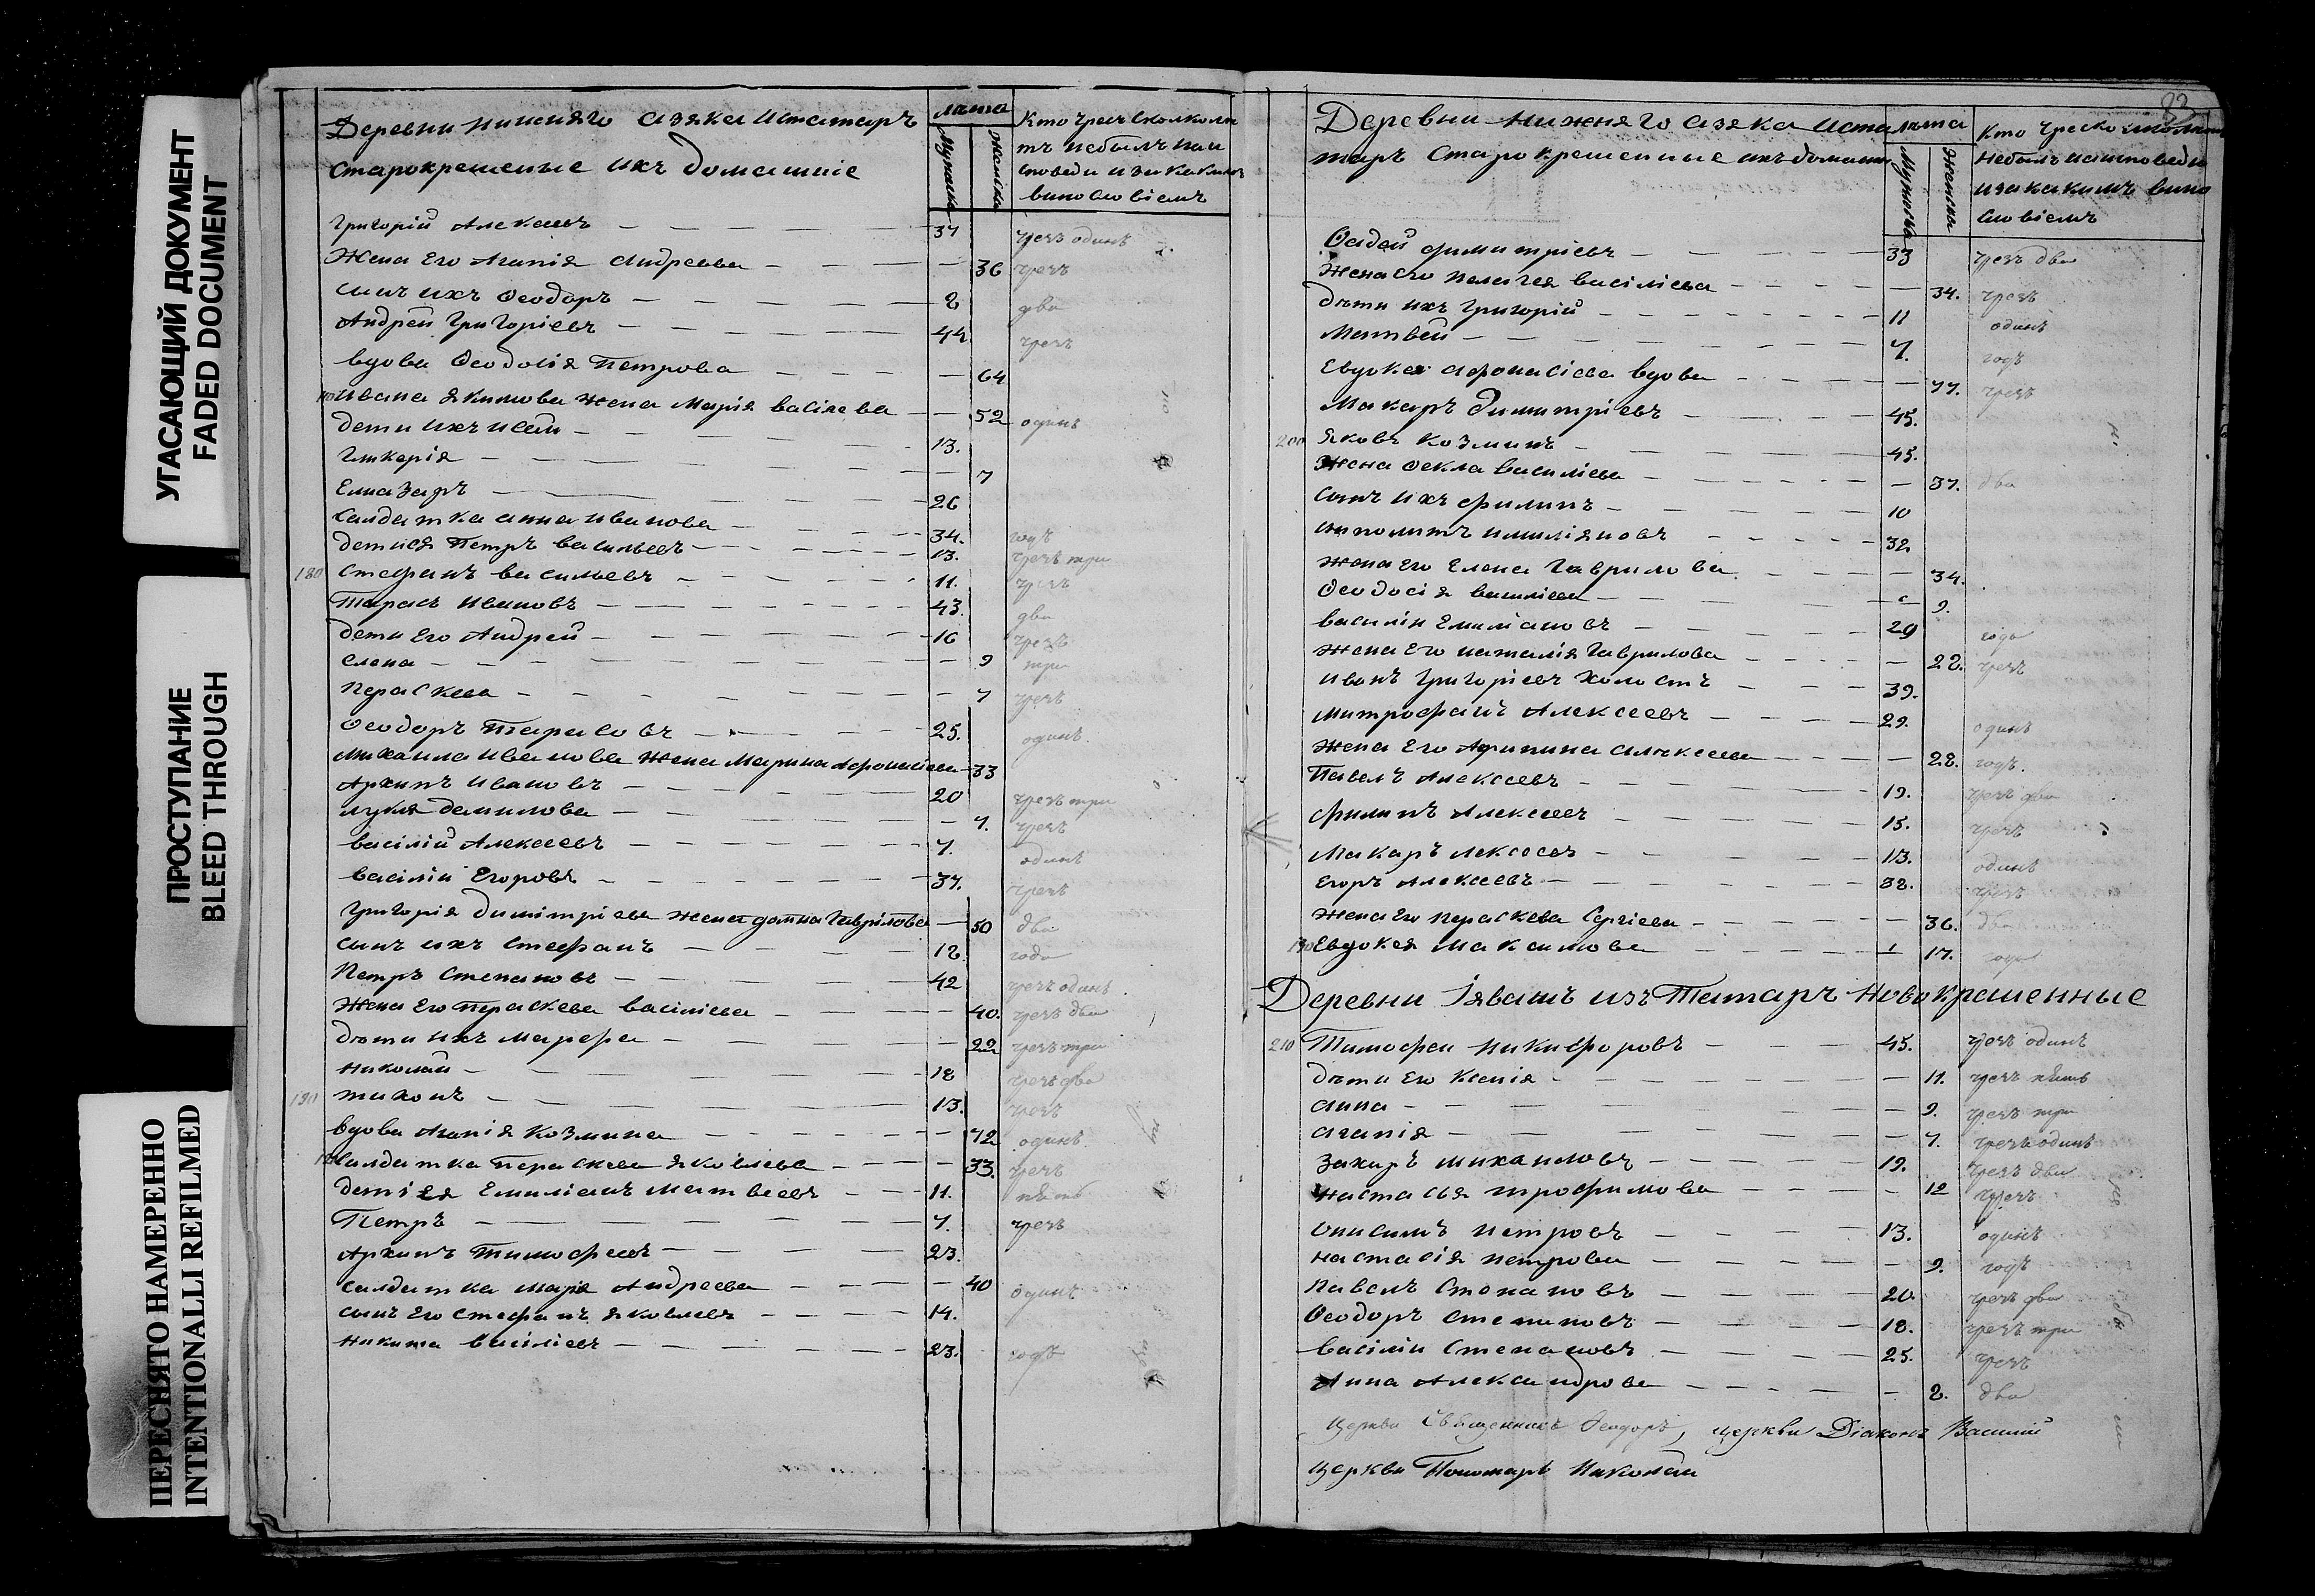 УГАСАЮЩИЙ ДОКУМЕНТ
FADED DOCUMENT
ПРОСТУПАНИЕ
BLEED THROUGH
ПЕРЕСНЯТО НАМЕРЕННО
INTENTIONALLI REFILMED
Деревни нижняго азяка истатаръ
старокрещеные ихъ домашніе
лѣта
Мужска
Женска
Кто чрезъ сколко лѣ
тъ небылъ наи
споведи и за каким
винословіемъ
Григорій Алексѣевъ 37 чрезъ одинъ
Жена Его Агапія Андреева 36 чрезъ
сынъ ихъ Ѳеодоръ 8 два
Андрей Григоріевъ 44 чрезъ
вдова Ѳеодосія Петрова 64
Ивана Якимова жена Марія васілева 52 одинъ
дети ихъ 13.
Гликерія 7
Елиазаръ 26
салдатка анна иванова 34. годъ
дети ея Петръ васильевъ 13. чрезъ три
180 Стефанъ васильевъ 11. чрезъ
Тарасъ Ивановъ 43. два
дети Его Андрей 16 чрезъ
Елена 9 три
Параскева 7 чрезъ
Ѳеодоръ Тарасовъ 25. одинъ
Михаила иванова жена Марина Афонасіева 33
Архипъ ивановъ 20 чрезъ три
данилова 7. чрезъ
васілій Алексеевъ 7. одинъ
васілій Егоровъ 37. чрезъ
Григорія Димітріева жена домна Гаврілова 50 два
сынъ ихъ Стефанъ 18. года
Петръ Степановъ 42 чрезъ одинъ
Жена Его Параскева васіліева 40. чрезъ два
дѣти ихъ Марефа 22 чрезъ три
Николай 18 чрезъ два
190 тихонъ 13. чрезъ
вдова Агапія Козмина 72 одинъ
салдатка Параскева яковлева 33. чрезъ
дети ея Емиліанъ Матвеевъ 11. пять
Петръ 7. чрезъ
Архипъ Тимофеевъ 23.
салдатка Марія Андреева 40 одинъ
сынъ Его Стефанъ яковлевъ 14.
Никита Васіліевъ 23. годъ
Деревни Нижняго азяка иста
таръ старокрещенные ихъ домашн
лѣта
Мужска
Женска
Кто чрезъ сколко
небылъ наисповеди
и за какимъ вино
словіемъ
Фадей Димитріевъ 33 чрезъ два
Жена его Пелагея васіліева 34. чрезъ
дѣти ихъ Григорій 11 одинъ
Матвей 7. годъ
Евдокея афонасіева вдова 77. чрезъ
Макаръ Димитріевъ 45.
200 Яковъ Козминъ 45.
Жена Ѳекла василіева 37. два
сынъ ихъ Филипъ 10
иполитъ имиліяновъ 32
жена его Елена Гаврилова 34.
Ѳеодосія василіева 9.
василіи Емиліановъ 29 года
Жена Его наталія Гаврилова 28. чрезъ
Иванъ Григоріевъ холостъ 39.
Митрофанъ Алексеевъ 29. одинъ
Жена Его Афипина алексеева 28. годъ.
Павелъ Алексеевъ 19. чрезъ два
Филипъ Алексеевъ 15. чрезъ
Макаръ лексеевъ 13. одинъ
Егоръ Алексеевъ 38. чрезъ
Жена Его Параскева Сергіева 36. два
Евдокея Максимова 17. года
Деревни Іявашъ изъ Татаръ Новокрященные
210 Тимофеи Никифоровъ 45. чрезъ одинъ
дѣти Его Ксенія 11. чрезъ пять
анна 9. чрезъ три
агапія 7. чрезъ одинъ
Захаръ михаиловъ 19. чрезъ два
Настасья трофимова 12 чрезъ
Онисимъ Петровъ 13. одинъ
Настасія петрова 9. годъ
Павелъ Степановъ 20 чрезъ два
Ѳеодоръ Степановъ 18. чрезъ три
Василіи Степановъ 25. чрезъ
Анна Александрова 8. два
Церкви Священникъ Ѳеодоръ, церкви Діаконъ Василий
Церкви Пономарь Николай